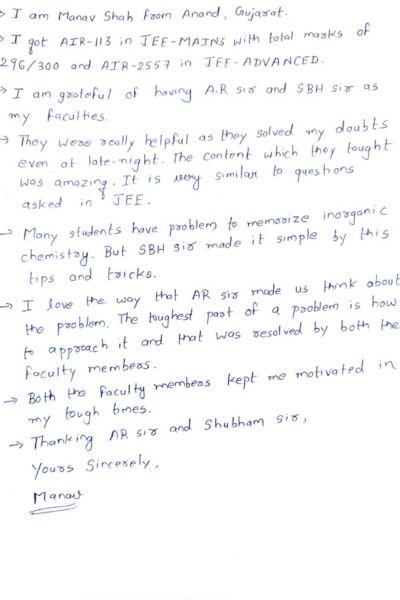 > I am Manav Shah from Anand, Gujarat.
> I got AIR-113 in JEE-MAINS with total marks of
296/300 and AIR-2557 in JEE-ADVANCED.
> I am grateful of having A.R sir and SBH sir as
my faculties.
→ They were really helpful as they solved my doubts
even at late-night. The content which they taught
was amazing. It is very similar to questions
asked in JEE.
→ Many students have problem to memorize inorganic
chemistry. But SBH sir made it simple by this
tips and tricks.
→ I love the way that AR sir made us think about
the problem. The toughest part of a problem is how
to approach it and that was resolved by both the
faculty members.
→ Both the faculty members kept me motivated in
my tough times.
→ Thanking AR sir and Shubham sir,
Yours Sincerely,
Manav